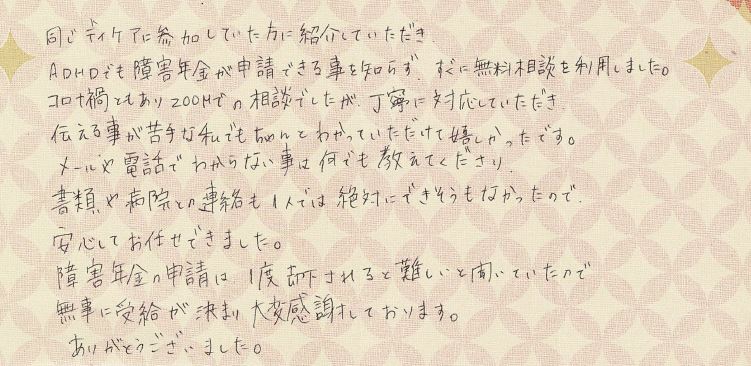 同じディケアに参加していた方に紹介していただき
ADHDでも障害年金が申請できる事を知らず すぐに無料相談を利用しました。
コロナ禍ともあり ZOOMでの相談でしたが、丁寧に対応していただき
伝える事が苦手な私でもちゃんとわかっていただけて嬉しかったです。
メールや電話でわからない事は何でも教えてくださり
書類や病院との連絡も1人では絶対にできそうもなかったので
安心してお任せできました。
障害年金の申請は1度却下されると難しいと聞いていたので
無事に受給が決まり大変感謝しております。
ありがとうございました。